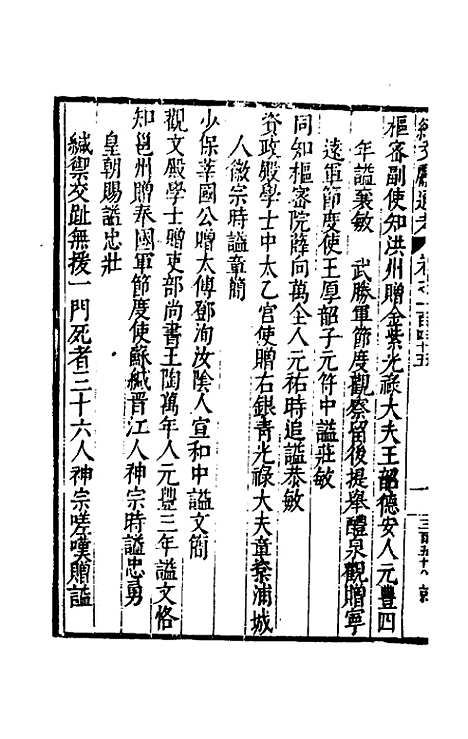 樞密副使知洪州贈金紫光祿大夫王韶德安人元豐四
年謚襄敏　武勝軍節度觀察留後提舉醴泉觀贈寧
遠軍節度使王厚韶子元符中謚莊敏
同知樞密院薛向萬全人元祐時追謚恭敏
資政殿學士中太乙宮使贈右銀青光祿大夫章楶浦城
人徽宗時謚章簡
少保莘國公贈太傅鄧洵汝陰人宣和中謚文簡
觀文殿學士贈吏部尚書王陶萬年人元豐三年謚文恪
知邕州贈奉國軍節度使蘇緘晋江人神宗時謚忠勇
皇朝賜謚忠壯
緘禦交趾無援一門死者三十六人神宗嗟嘆贈謚